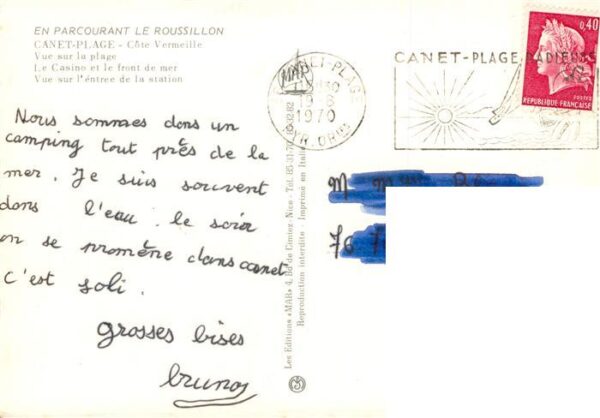 EN PARCOURANT LE ROUSSILLON
CANET-PLAGE - Côte Vermeille
Vue sur la plage
Le Casino et le front de mer
Vue sur l'éntree de la station
Nous sommes dans un
camping tout près de la
mer. Je suis souvent
dans l'eau. le soir
on se promène dans canet
C'est joli.
grosses bises
bruno
Les Editions «MAR» 4, Bd de Cimiez, Nice - Tél.
Reproduction interdite - Imprimé en Italie
MAR
CANET-PLAGE
1970
PYR. ORles
CANET-PLAGE RADIEUSE
0,40
POSTES
REPUBLIQUE FRANÇAISE
M
76